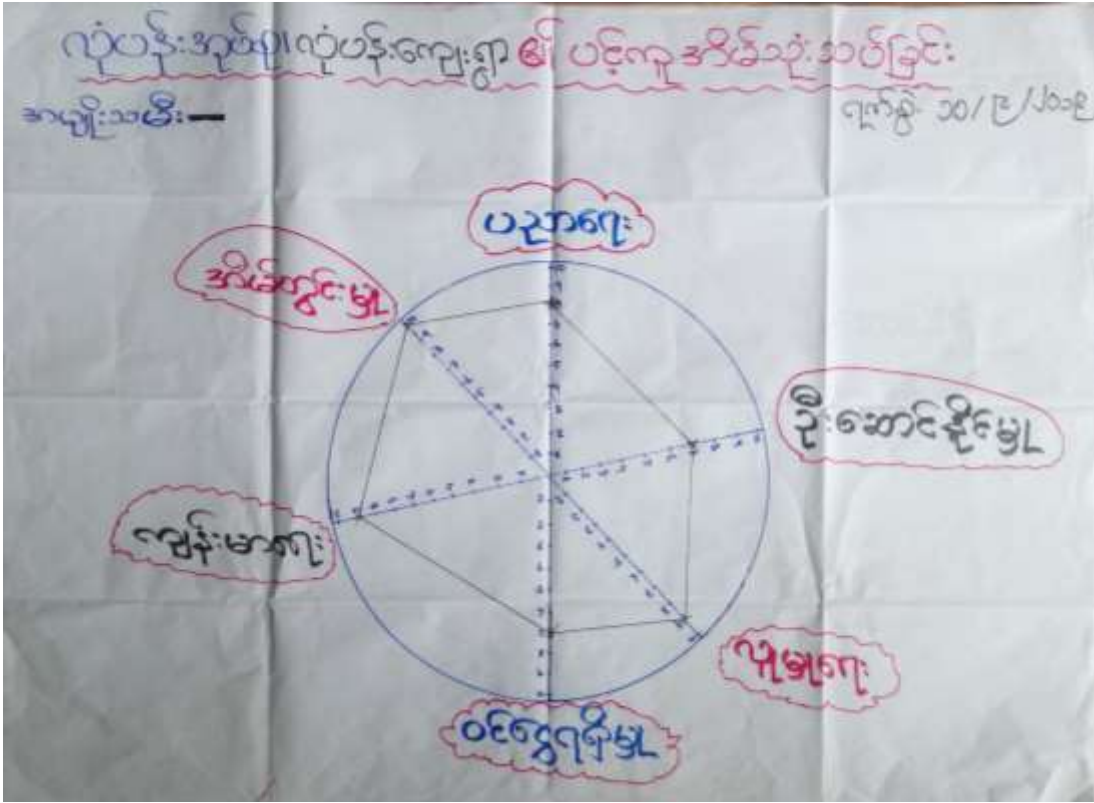 လုံပန်းအုပ်စု၊ လုံပန်းကျေးရွာ ၏ ပင့်ကူအိမ်သုံးသပ်ခြင်း
အမျိုးသမီး
ရက်စွဲ- ၁၀/၉/၂၀၁၉
ပညာရေး
အိမ်တွင်းမှု
ဦးဆောင်နိုင်မှု
ကျန်းမာရေး
လူမှုရေး
ဝင်ငွေရရှိမှု